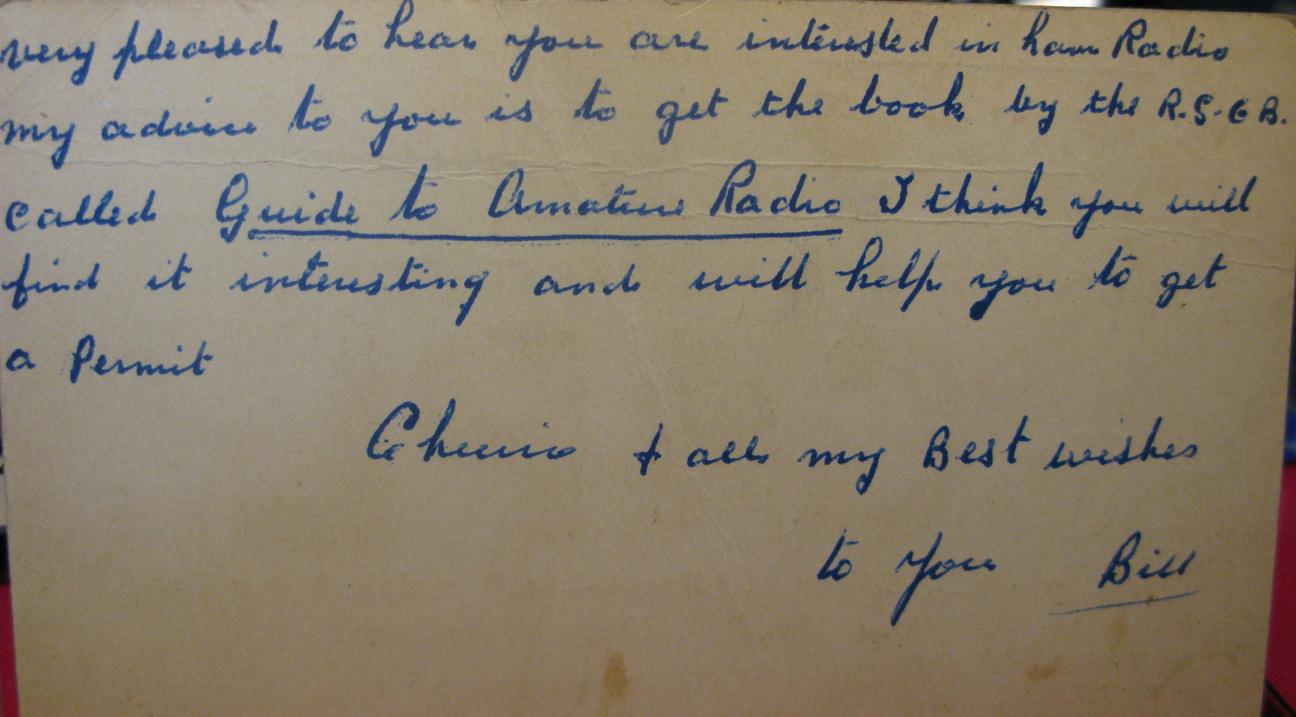 very pleased to hear you are interested in ham Radio
my advice to you is to get the book by the R.S.G B.
called Guide to Amateur Radio I think you will
find it interesting and will help you to get
a Permit
Cheerio & all my Best wishes
to you Bill